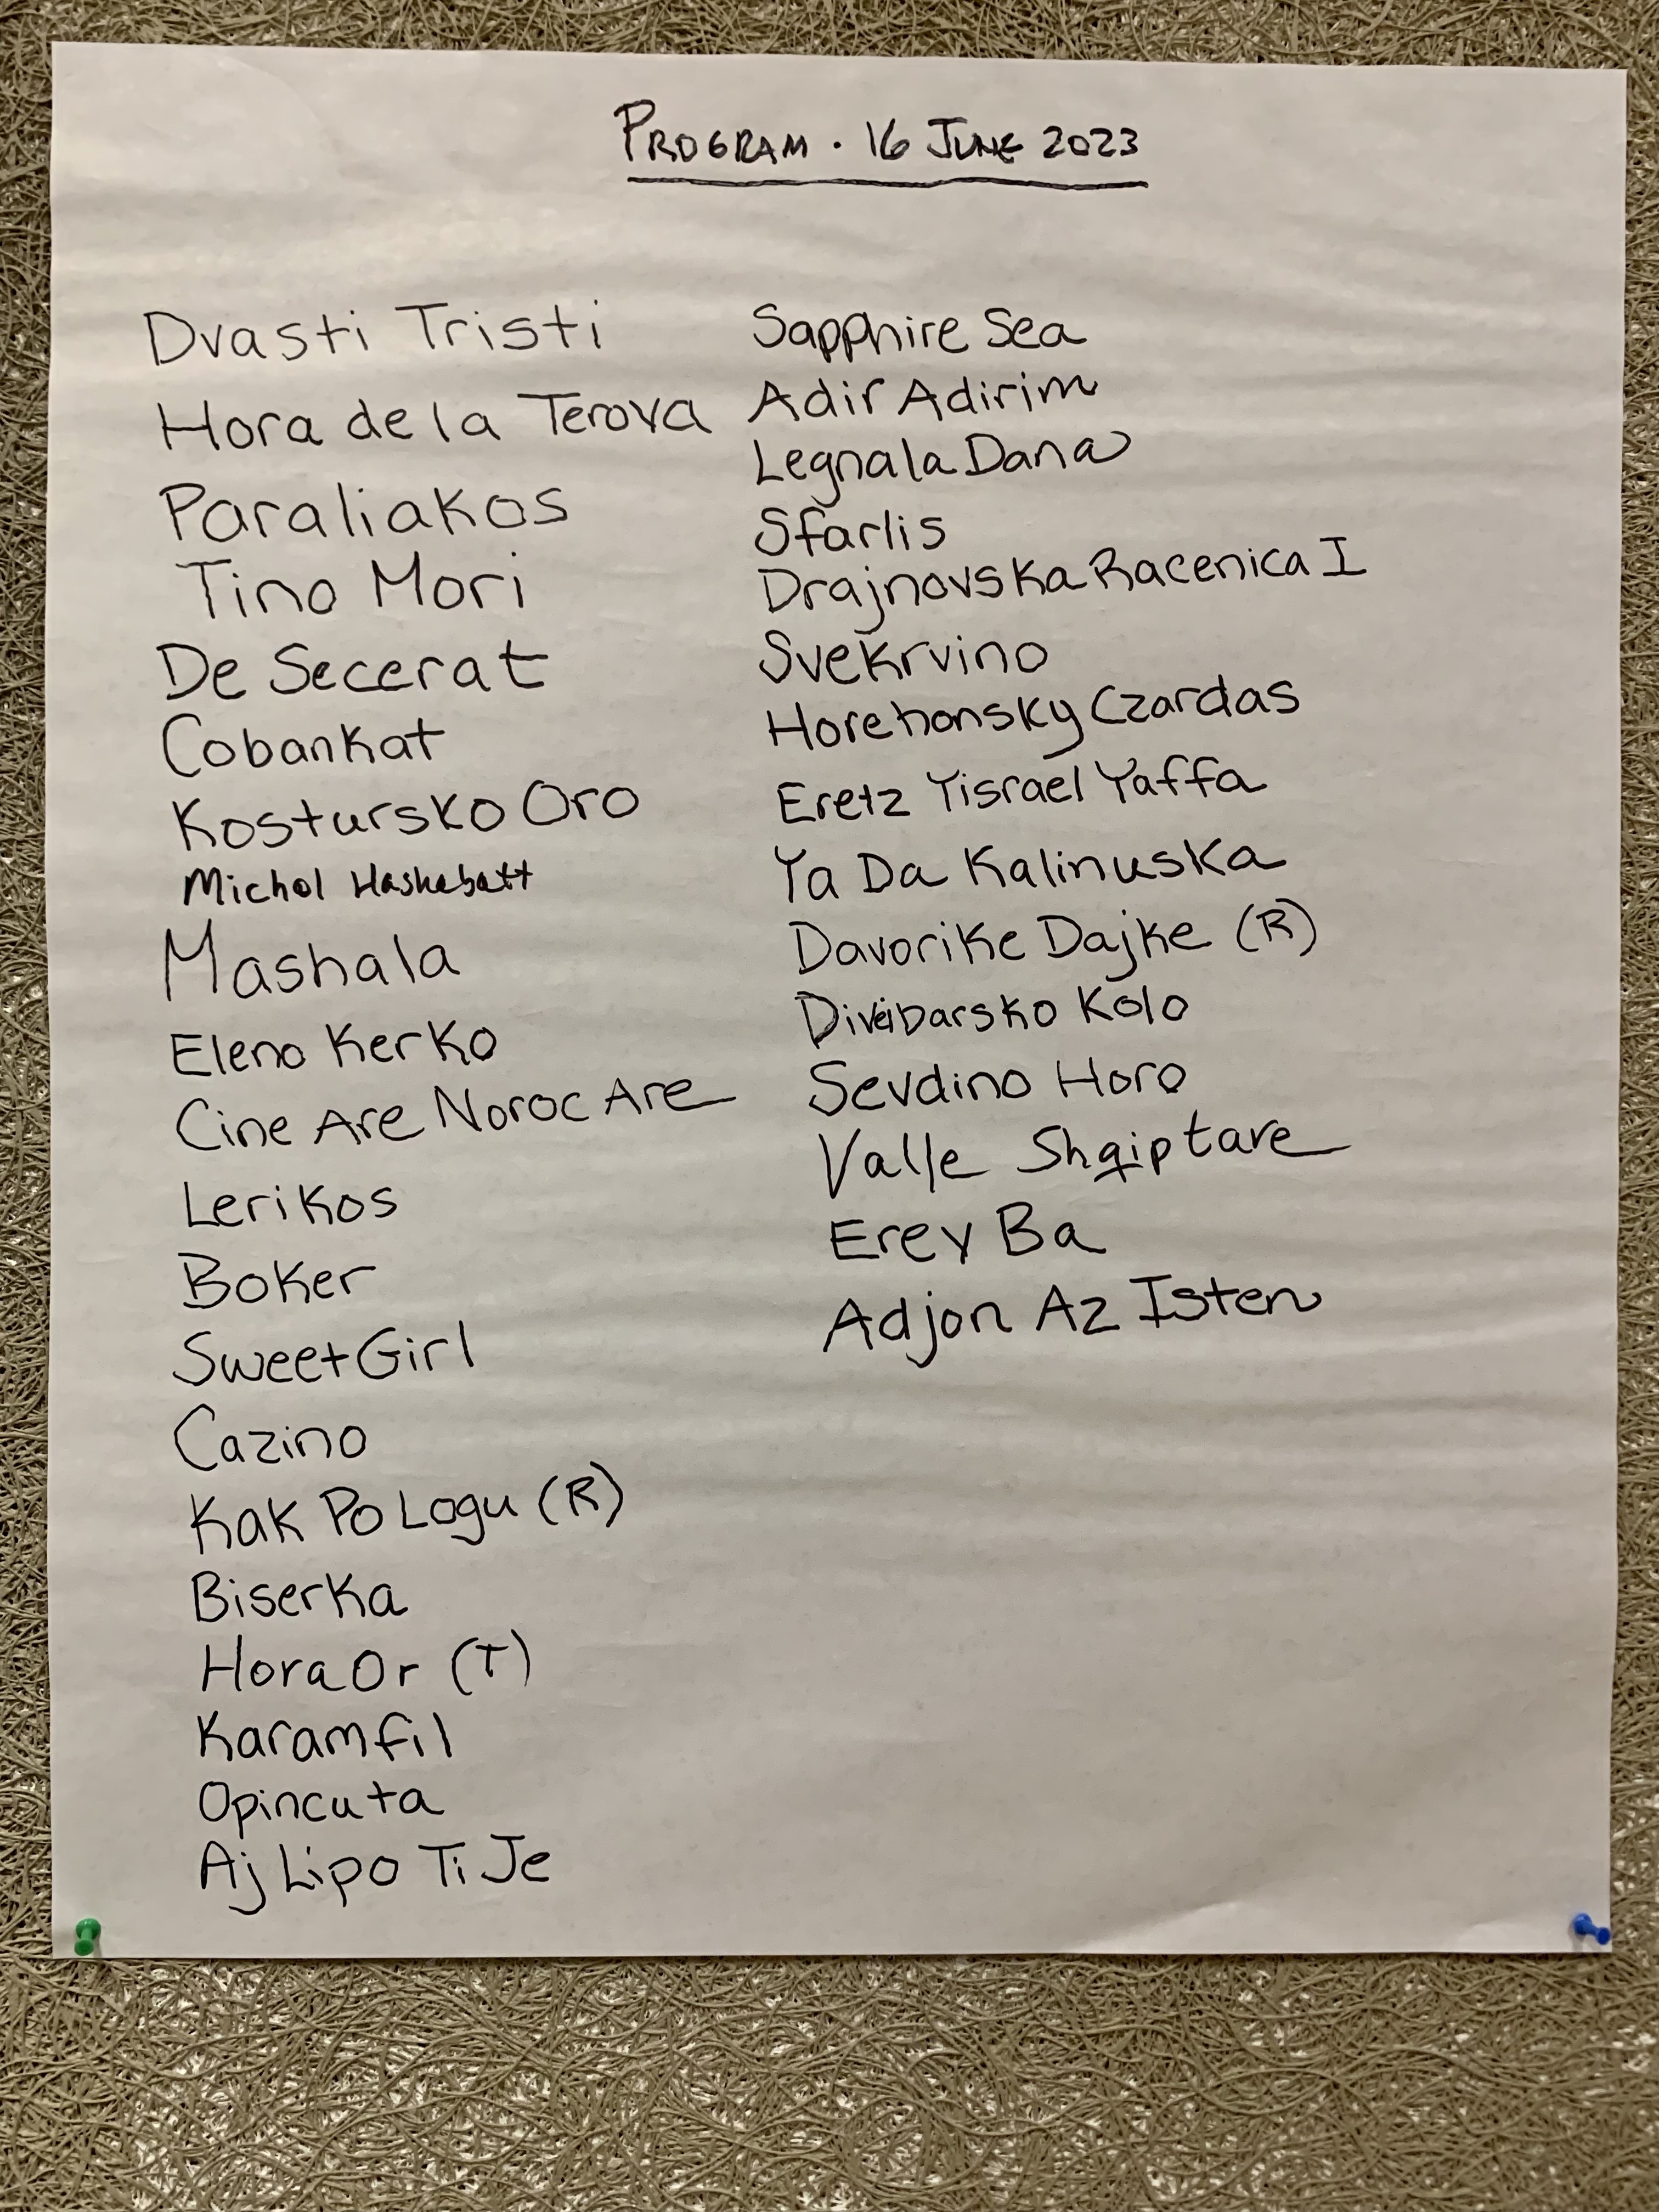 PROGRAM · 16 JUNE 2023
Dvasti Tristi
Hora de la Terova
Paraliakos
Tino Mori
De Secerat
Cobankat
Kostursko Oro
Michol Haskebatt
Mashala
Eleno Kerko
Cine Are Noroc Are
Lerikos
Boker
Sweet Girl
Cazino
Kak Po Logu (R)
Biserka
Hora Or (T)
Karamfil
Opincuta
Aj Lipo Ti Je
Sapphire Sea
Adir Adirim
Legnala Dana
Sfarlis
Drajnovska Racenica I
Svekrvino
Horehonsky Czardas
Eretz Yisrael Yaffa
Ya Da Kalinuska
Davorike Dajke (R)
Kolo
Sevdino Horo
Valle Shqiptare
Erev Ba
Adjon Az Isten